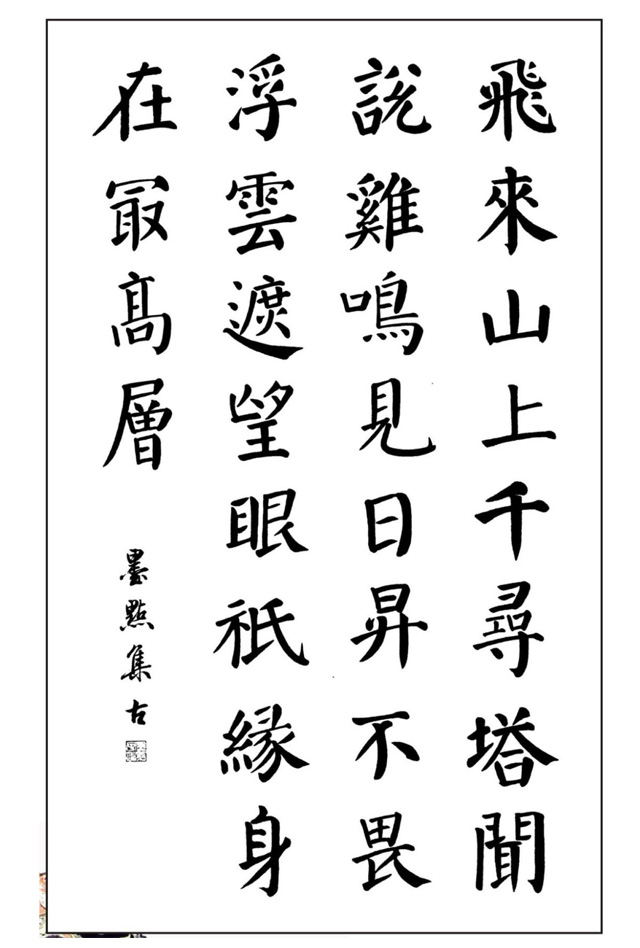 飛來山上千尋塔聞
說雞鳴見日昇不畏
浮雲遮望眼衹緣身
在冣高層
墨點集古